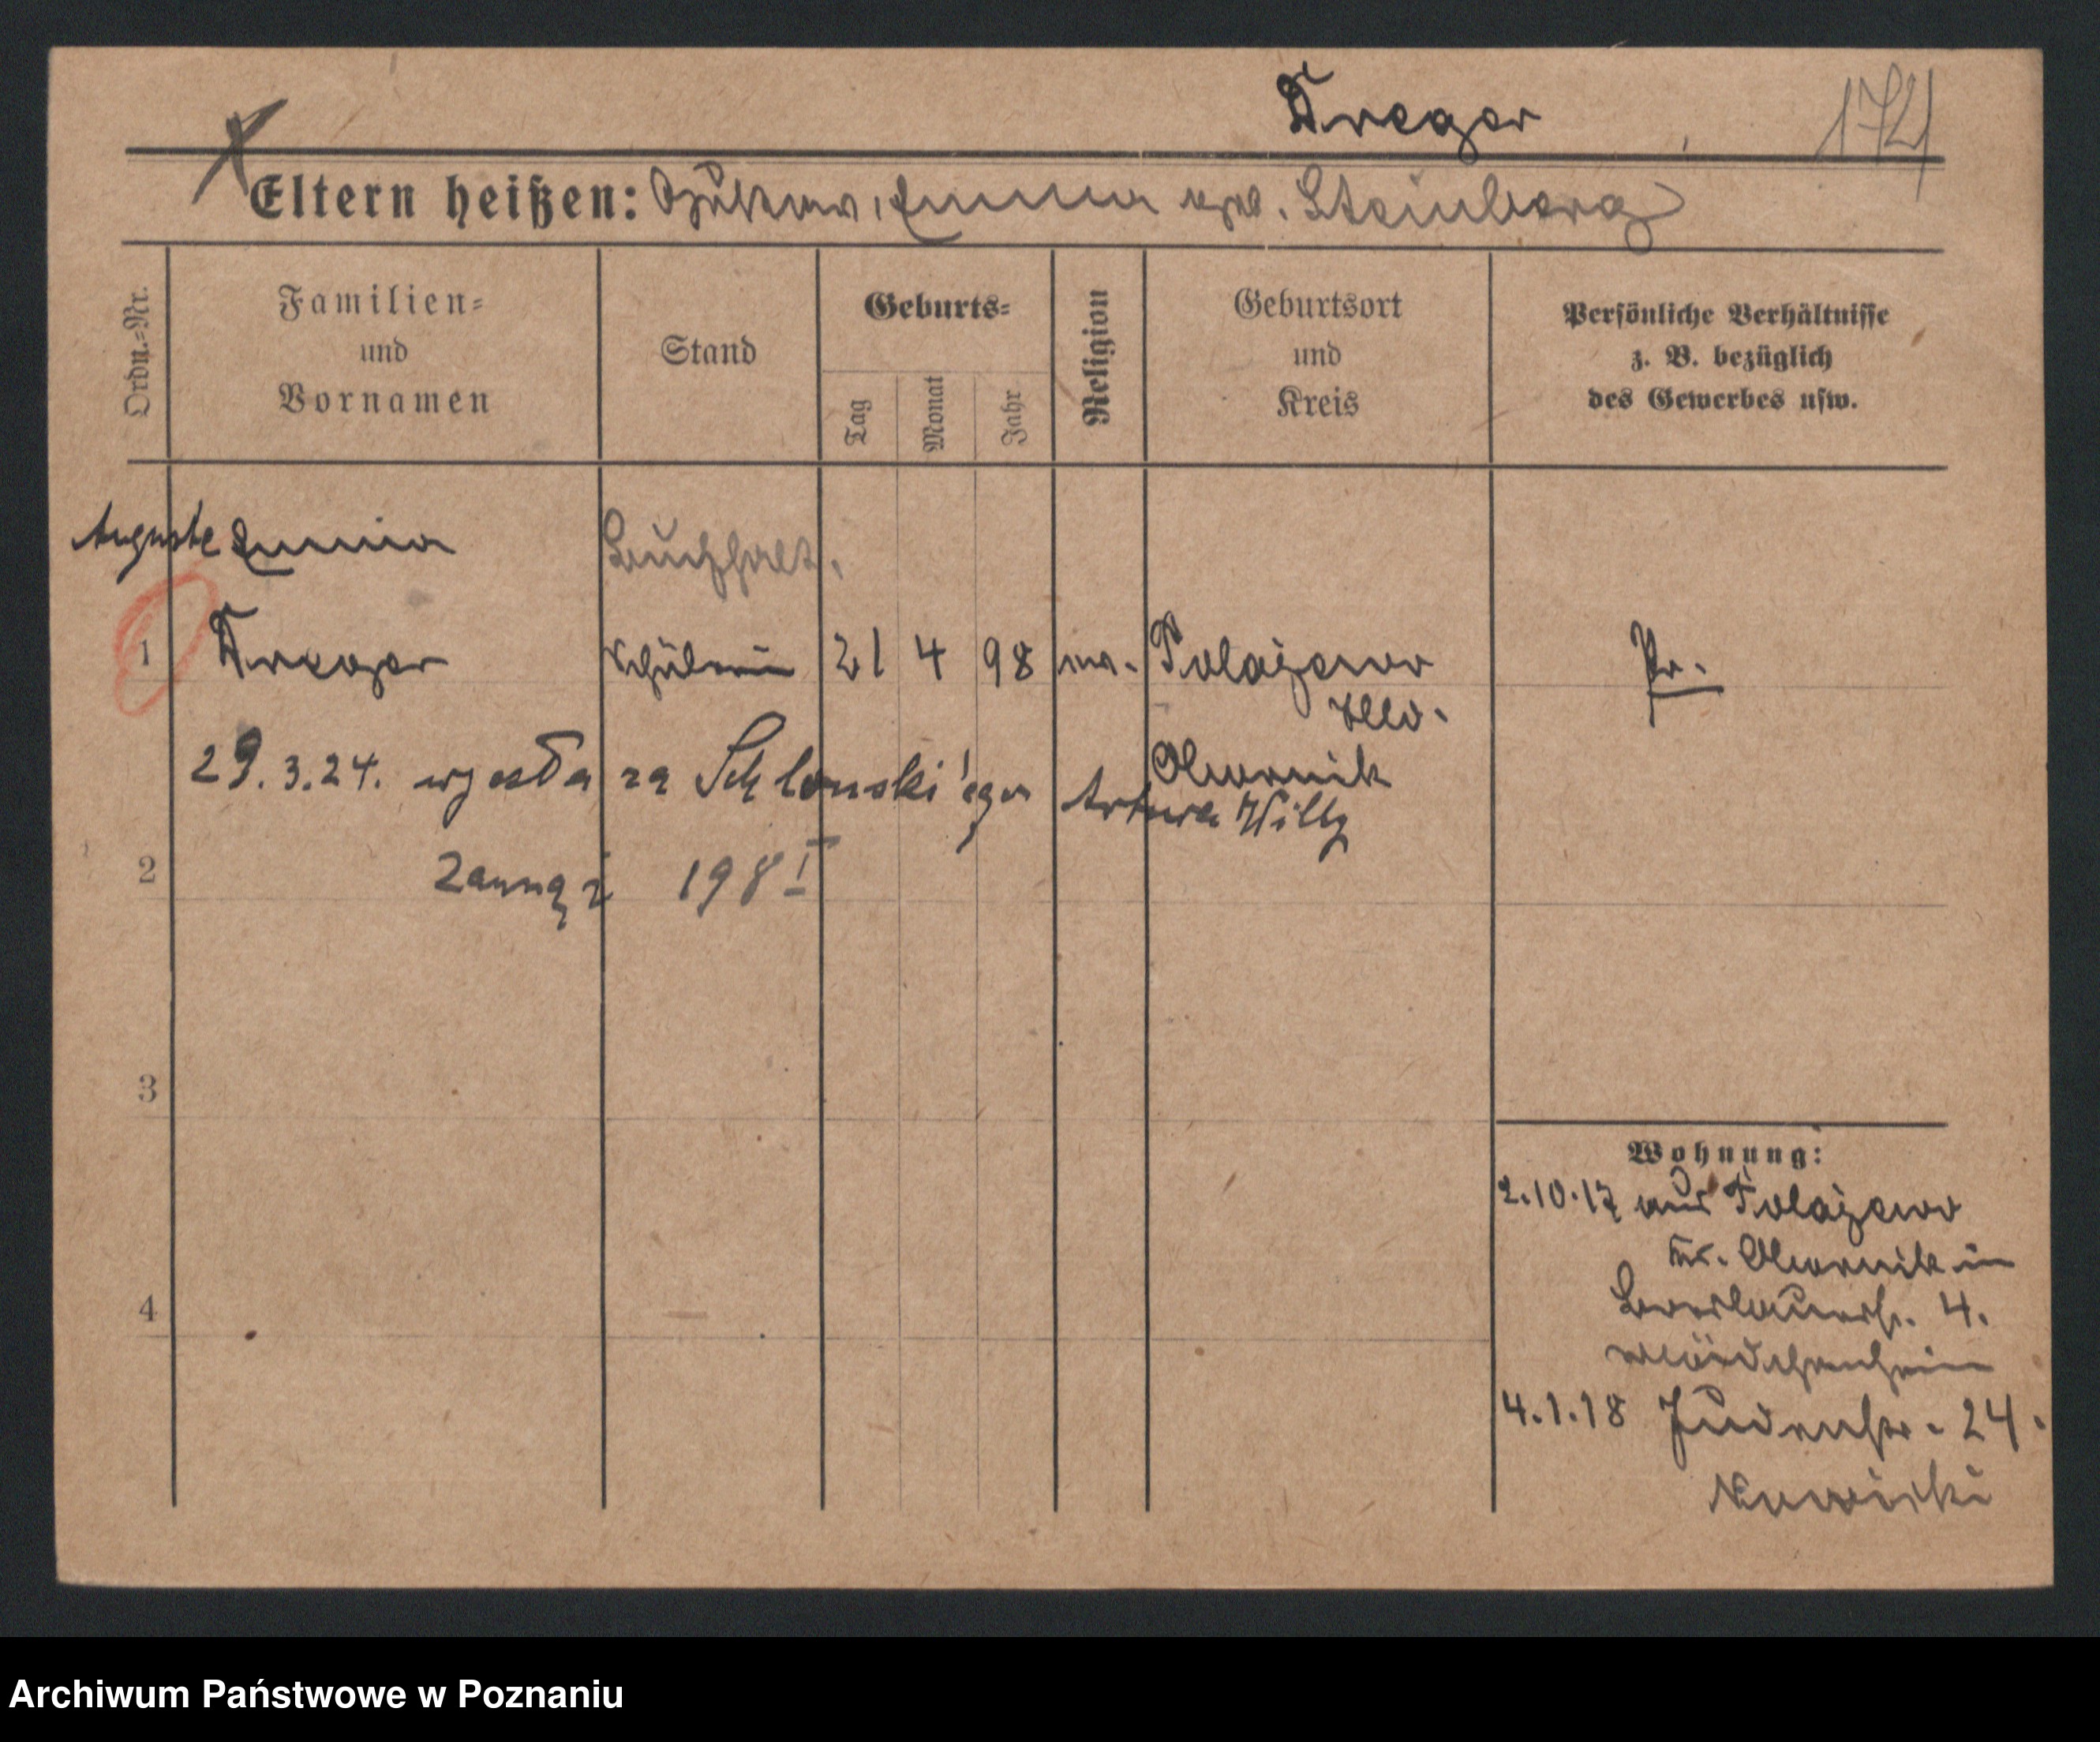 Treger 1721
Eltern heißen: Gustav, Emma geb. Steinberg
Ordn.=Nr.
Familien=
und
Vornamen
Stand
Geburts=
Tag
Monat
Jahr
Religion
Geburtsort
und
Kreis
Persönliche Verhältnisse
z. B. bezüglich
des Gewerbes usw.
Auguste Emma Buchhalt.
1 Treger Schülerin 21 4 98 ev. Polajewo Pr.
Kr.
Obornik
29.3.24. wyszła za Schlonski'ego Artura Willy
2 Zamąż 198 I
3
4
Wohnung:
2.10.17 aus Polajewo
Kr. Obornik in
Breslauerstr. 4.
Mädchenheim
4.1.18 Judenstr. 24.
Nowicki
Archiwum Państwowe w Poznaniu